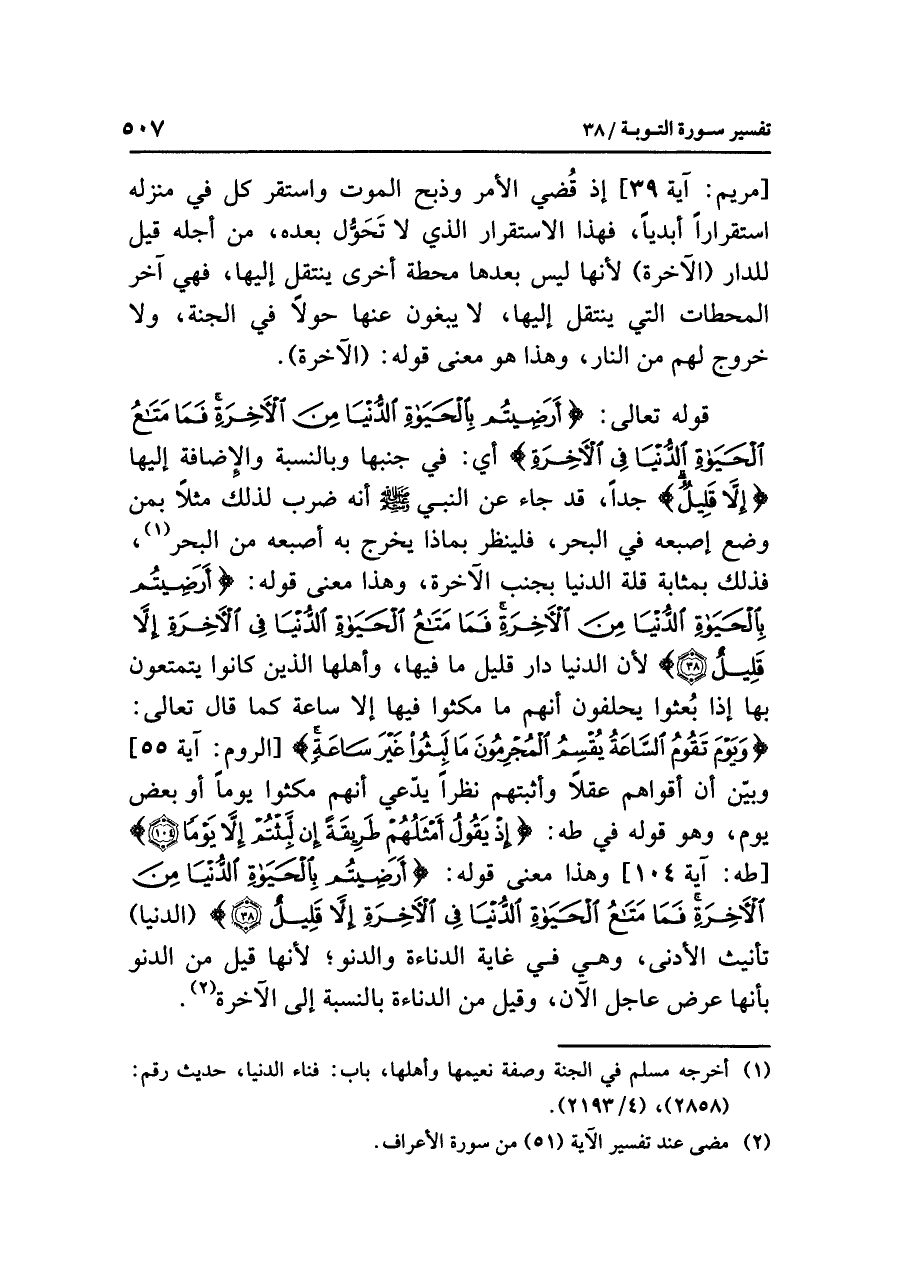 تفسير سورة التوبة / ٣٨ ٥٠٧
[مريم: آية ٣٩] إذ قُضي الأمر وذبح الموت واستقر كل في منزله
استقراراً أبدياً، فهذا الاستقرار الذي لا تَحَوُّل بعده، من أجله قيل
للدار (الآخرة) لأنها ليس بعدها محطة أخرى ينتقل إليها، فهي آخر
المحطات التي ينتقل إليها، لا يبغون عنها حولاً في الجنة، ولا
خروج لهم من النار، وهذا هو معنى قوله: (الآخرة).
قوله تعالى: ﴿أَرَضِيتُم بِٱلْحَيَوٰةِ ٱلدُّنْيَا مِنَ ٱلْآخِرَةِۚ فَمَا مَتَـٰعُ
ٱلْحَيَوٰةِ ٱلدُّنْيَا فِى ٱلْآخِرَةِ﴾ أي: في جنبها وبالنسبة والإِضافة إليها
﴿إِلَّا قَلِيلٌ﴾ جداً، قد جاء عن النبي ﷺ أنه ضرب لذلك مثلاً بمن
وضع إصبعه في البحر، فلينظر بماذا يخرج به أصبعه من البحر(١)،
فذلك بمثابة قلة الدنيا بجنب الآخرة، وهذا معنى قوله: ﴿أَرَضِيتُم
بِٱلْحَيَوٰةِ ٱلدُّنْيَا مِنَ ٱلْآخِرَةِۚ فَمَا مَتَـٰعُ ٱلْحَيَوٰةِ ٱلدُّنْيَا فِى ٱلْآخِرَةِ إِلَّا
قَلِيلٌ ٣٨﴾ لأن الدنيا دار قليل ما فيها، وأهلها الذين كانوا يتمتعون
بها إذا بُعثوا يحلفون أنهم ما مكثوا فيها إلا ساعة كما قال تعالى:
﴿وَيَوْمَ تَقُومُ ٱلسَّاعَةُ يُقْسِمُ ٱلْمُجْرِمُونَ مَا لَبِثُوا۟ غَيْرَ سَاعَةٍۚ﴾ [الروم: آية ٥٥]
وبيّن أن أقواهم عقلاً وأثبتهم نظراً يدّعي أنهم مكثوا يوماً أو بعض
يوم، وهو قوله في طه: ﴿إِذْ يَقُولُ أَمْثَلُهُمْ طَرِيقَةً إِن لَّبِثْتُمْ إِلَّا يَوْمًا ١٠٤﴾
[طه: آية ١٠٤] وهذا معنى قوله: ﴿أَرَضِيتُم بِٱلْحَيَوٰةِ ٱلدُّنْيَا مِنَ
ٱلْآخِرَةِۚ فَمَا مَتَـٰعُ ٱلْحَيَوٰةِ ٱلدُّنْيَا فِى ٱلْآخِرَةِ إِلَّا قَلِيلٌ ٣٨﴾ (الدنيا)
تأنيث الأدنى، وهي في غاية الدناءة والدنو؛ لأنها قيل من الدنو
بأنها عرض عاجل الآن، وقيل من الدناءة بالنسبة إلى الآخرة(٢).
(١) أخرجه مسلم في الجنة وصفة نعيمها وأهلها، باب: فناء الدنيا، حديث رقم:
(٢٨٥٨)، (٢١٩٣/٤).
(٢) مضى عند تفسير الآية (٥١) من سورة الأعراف.